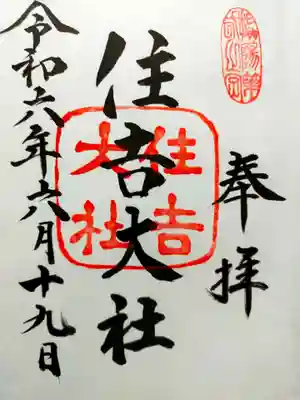 奉拝
住吉大社
住吉大社
令和六年六月十九日